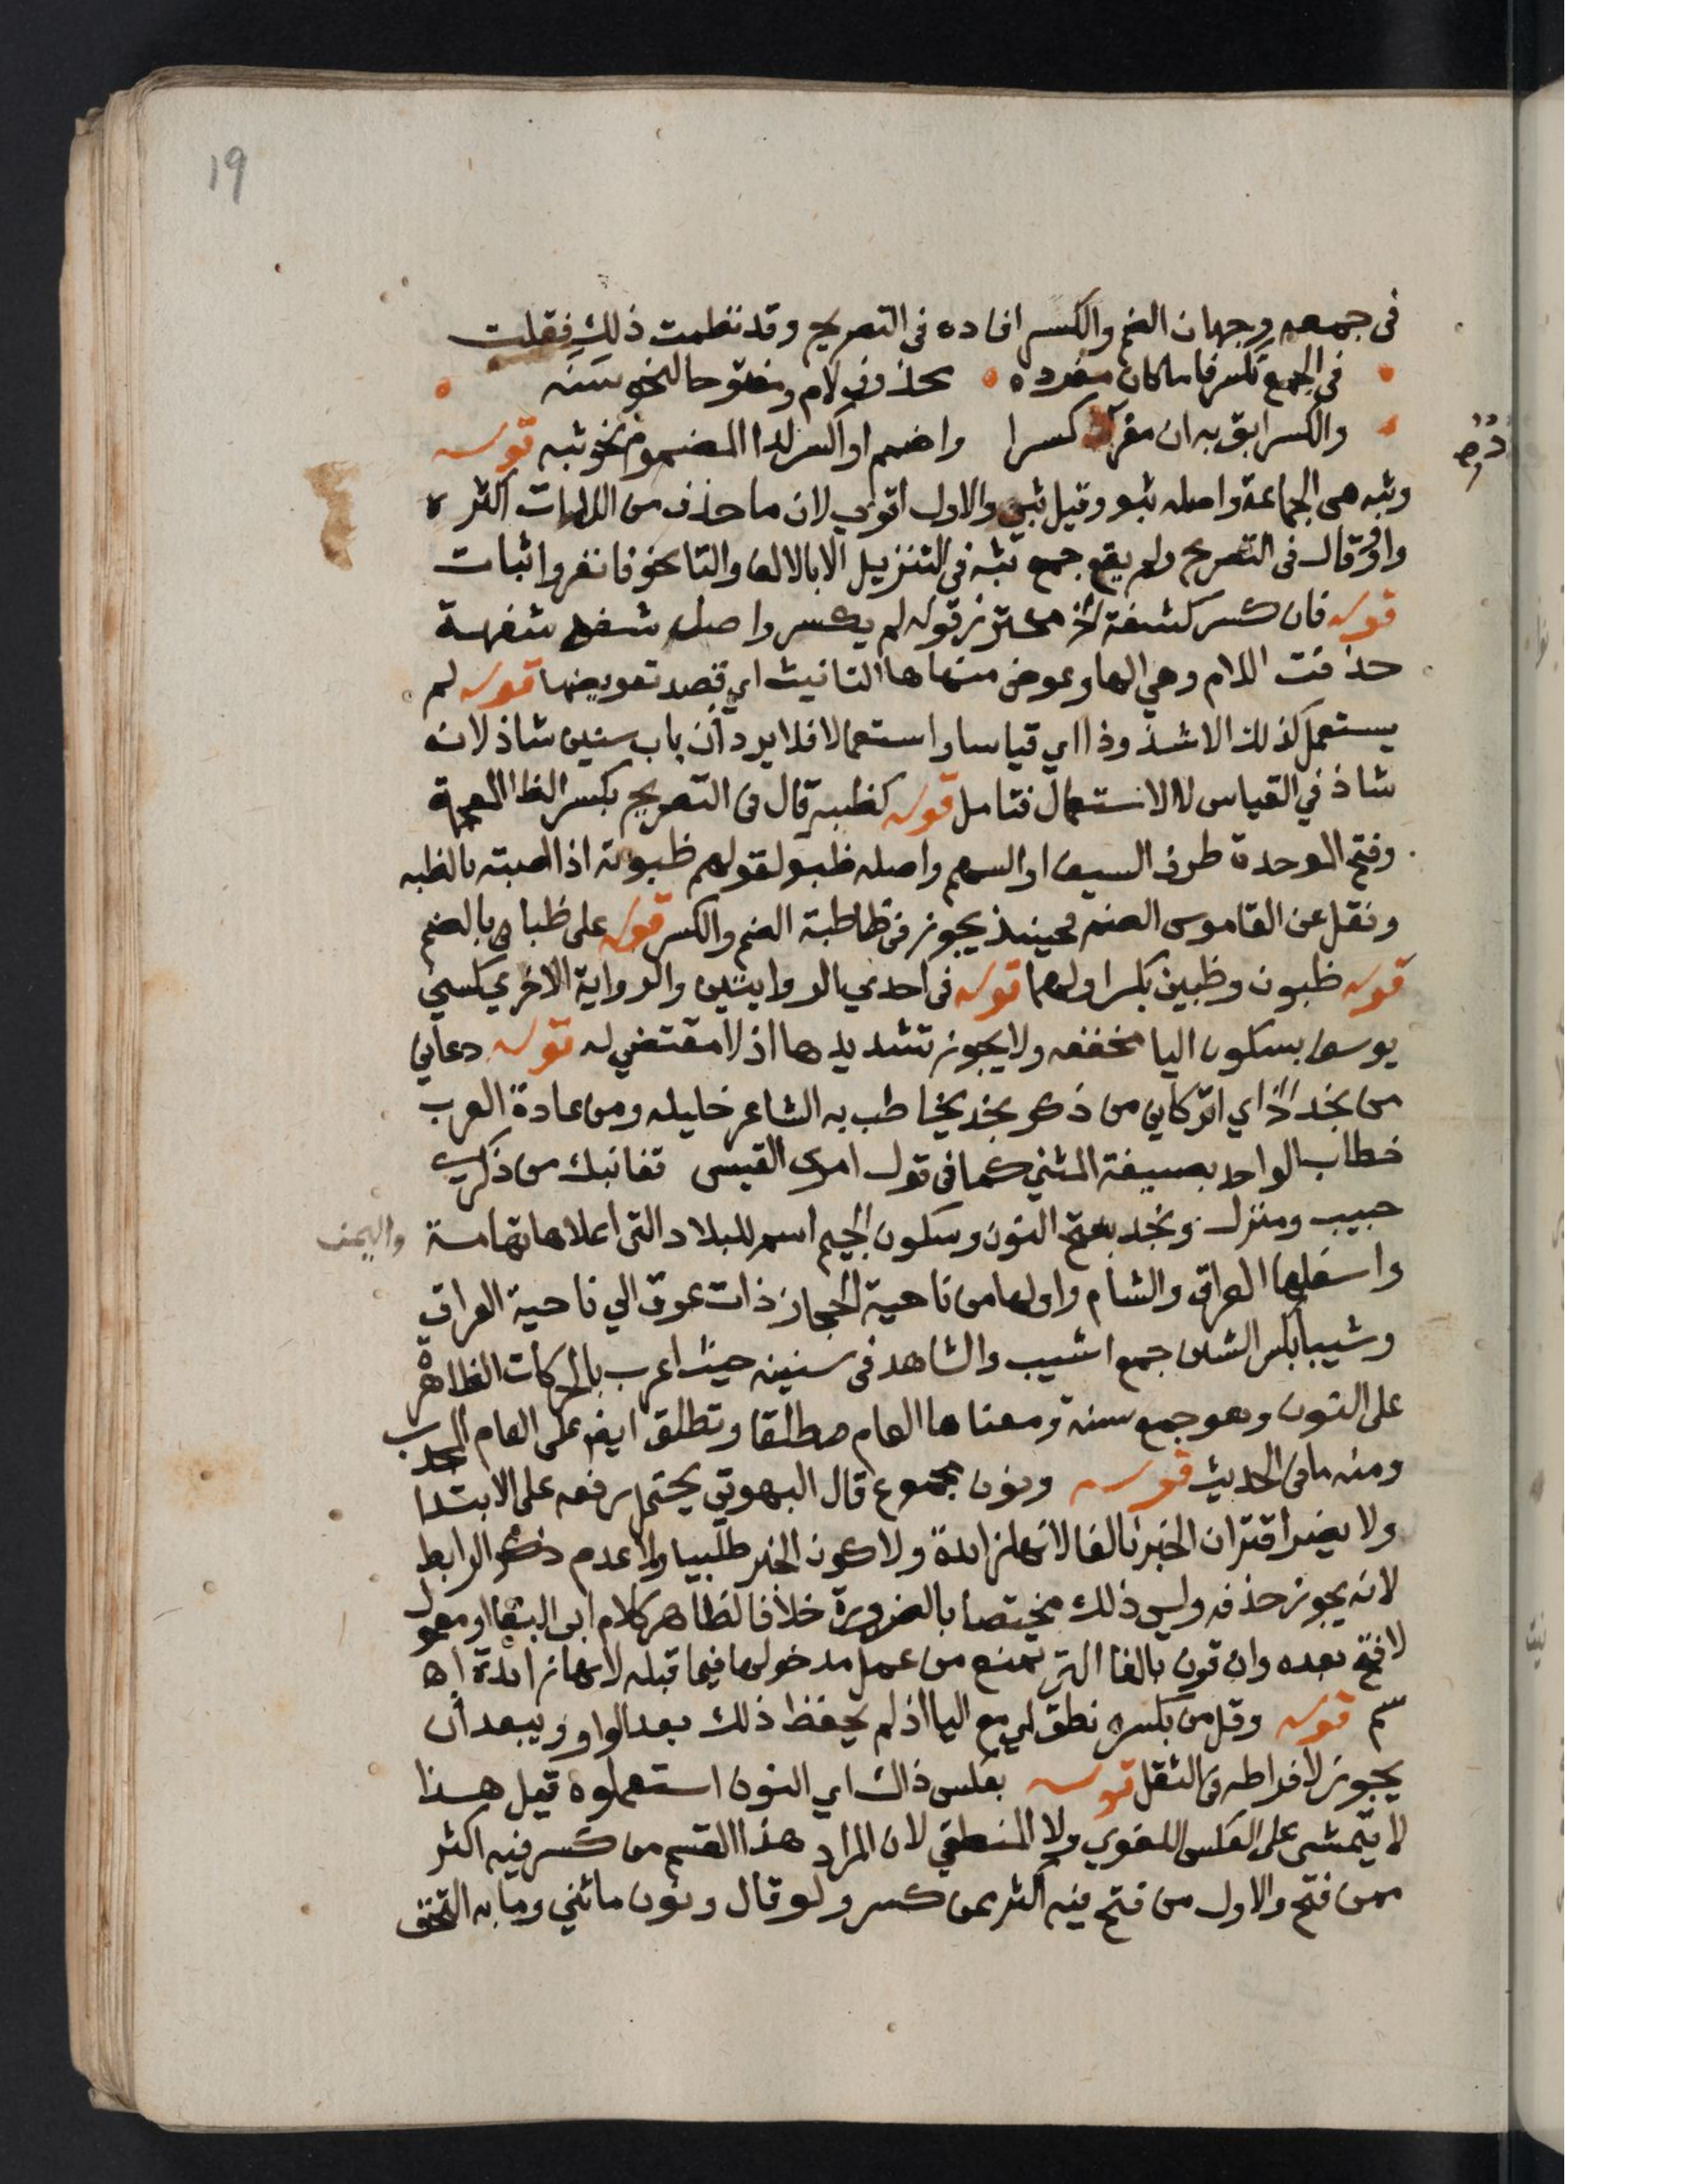 19
في جمعه وجهان الضم والكسر افاده في التصريح وقد نظمت ذلك فقلت
في الجمع تكسر فا ما كان مفرده بحذف لام ومفتوحا لنحو سنه
والكسر ابق به ان مفرد كسرا واضمم او اكسر لدا المضموم نحو ثبه قوله
وثبه هي الجماعة واصله ثبو وقيل ثبي والاول اقوي لان ما حذف من اللامات اكثره
واو وقال في التصريح ولم يقع جمع ثبة في التنزيل الا بالالف والتا نحو فانفروا ثبات
قوله فان كسر كشفة الخ محترز قوله لم يكسر واصل شفه شفهة
حذفت اللام وهي الها وعوض منها ها التانيث اي قصد تعويضها قوله لم
يستعمل كذلك الا شذوذا اي قياسا واستعمالا فلا يرد ان باب سنين شاذ لانه
شاذ في القياس لا الاستعمال فتامل قوله كظبه قال في التصريح بكسر الظا المعجمة
وفتح الموحدة طرف السيف او السهم واصله ظبو لقولهم ظبوته اذا اصبته بالظبه
ونقل عن القاموس الضم فحينئذ يجوز في ظا ظبة الضم والكسر قوله على ظبا اي بالضم
قوله ظبون وظبين بكسر اولهما قوله في احدي الروايتين والرواية الاخري كسني
يوسف بسكون اليا مخففه ولا يجوز تشديدها اذ لا مقتضي له قوله دعاني
من نجد الخ اي اتركاني من ذكر نجد يخاطب به الشاعر خليله ومن عادة العرب
خطاب الواحد بصيغة المثني كما في قول امرئ القيس قفا نبك من ذكري
حبيب ومنزل ونجد بفتح النون وسكون الجيم اسم للبلاد التي اعلاها تهامة واليمن
واسفلها العراق والشام واولها من ناحية الحجاز ذات عرق الي ناحية العراق
وشيبا بكسر الشين جمع اشيب والشاهد في سنينه حيث اعرب بالحركات الظاهرة
على النون وهو جمع سنة ومعناها العام مطلقا وتطلق ايضا على العام الجدب
ومنه ما في الحديث قوله ونون مجموع قال البهوتي يحتمل رفعه على الابتدا
ولا يضر اقتران الخبر بالفا لانها زائدة ولا كون الخبر طلبيا ولا عدم ذكر الرابط
لانه يجوز حذفه وليس ذلك مختصا بالضرورة خلافا لظاهر كلام ابي البقا او مفعول
لافتح بعده وان قرن بالفا التي تمنع من عمل مدخولها فيما قبله لانها زائدة اه
سم قوله وقل من بكسره نطق لي مع اليا اذ لم يحفظ ذلك بعد الواو ويبعد ان
يجوز لافراطه في الثقل قوله بعكس ذاك اي النون استعملوه قيل هذا
لا يتمشى على العكس اللغوي ولا المنطقي لان المراد هذا القسم من كسر فيه اكثر
ممن فتح والاول من فتح فيه اكثر ممن كسر ولو قال ونون ما ثني وما به التحق